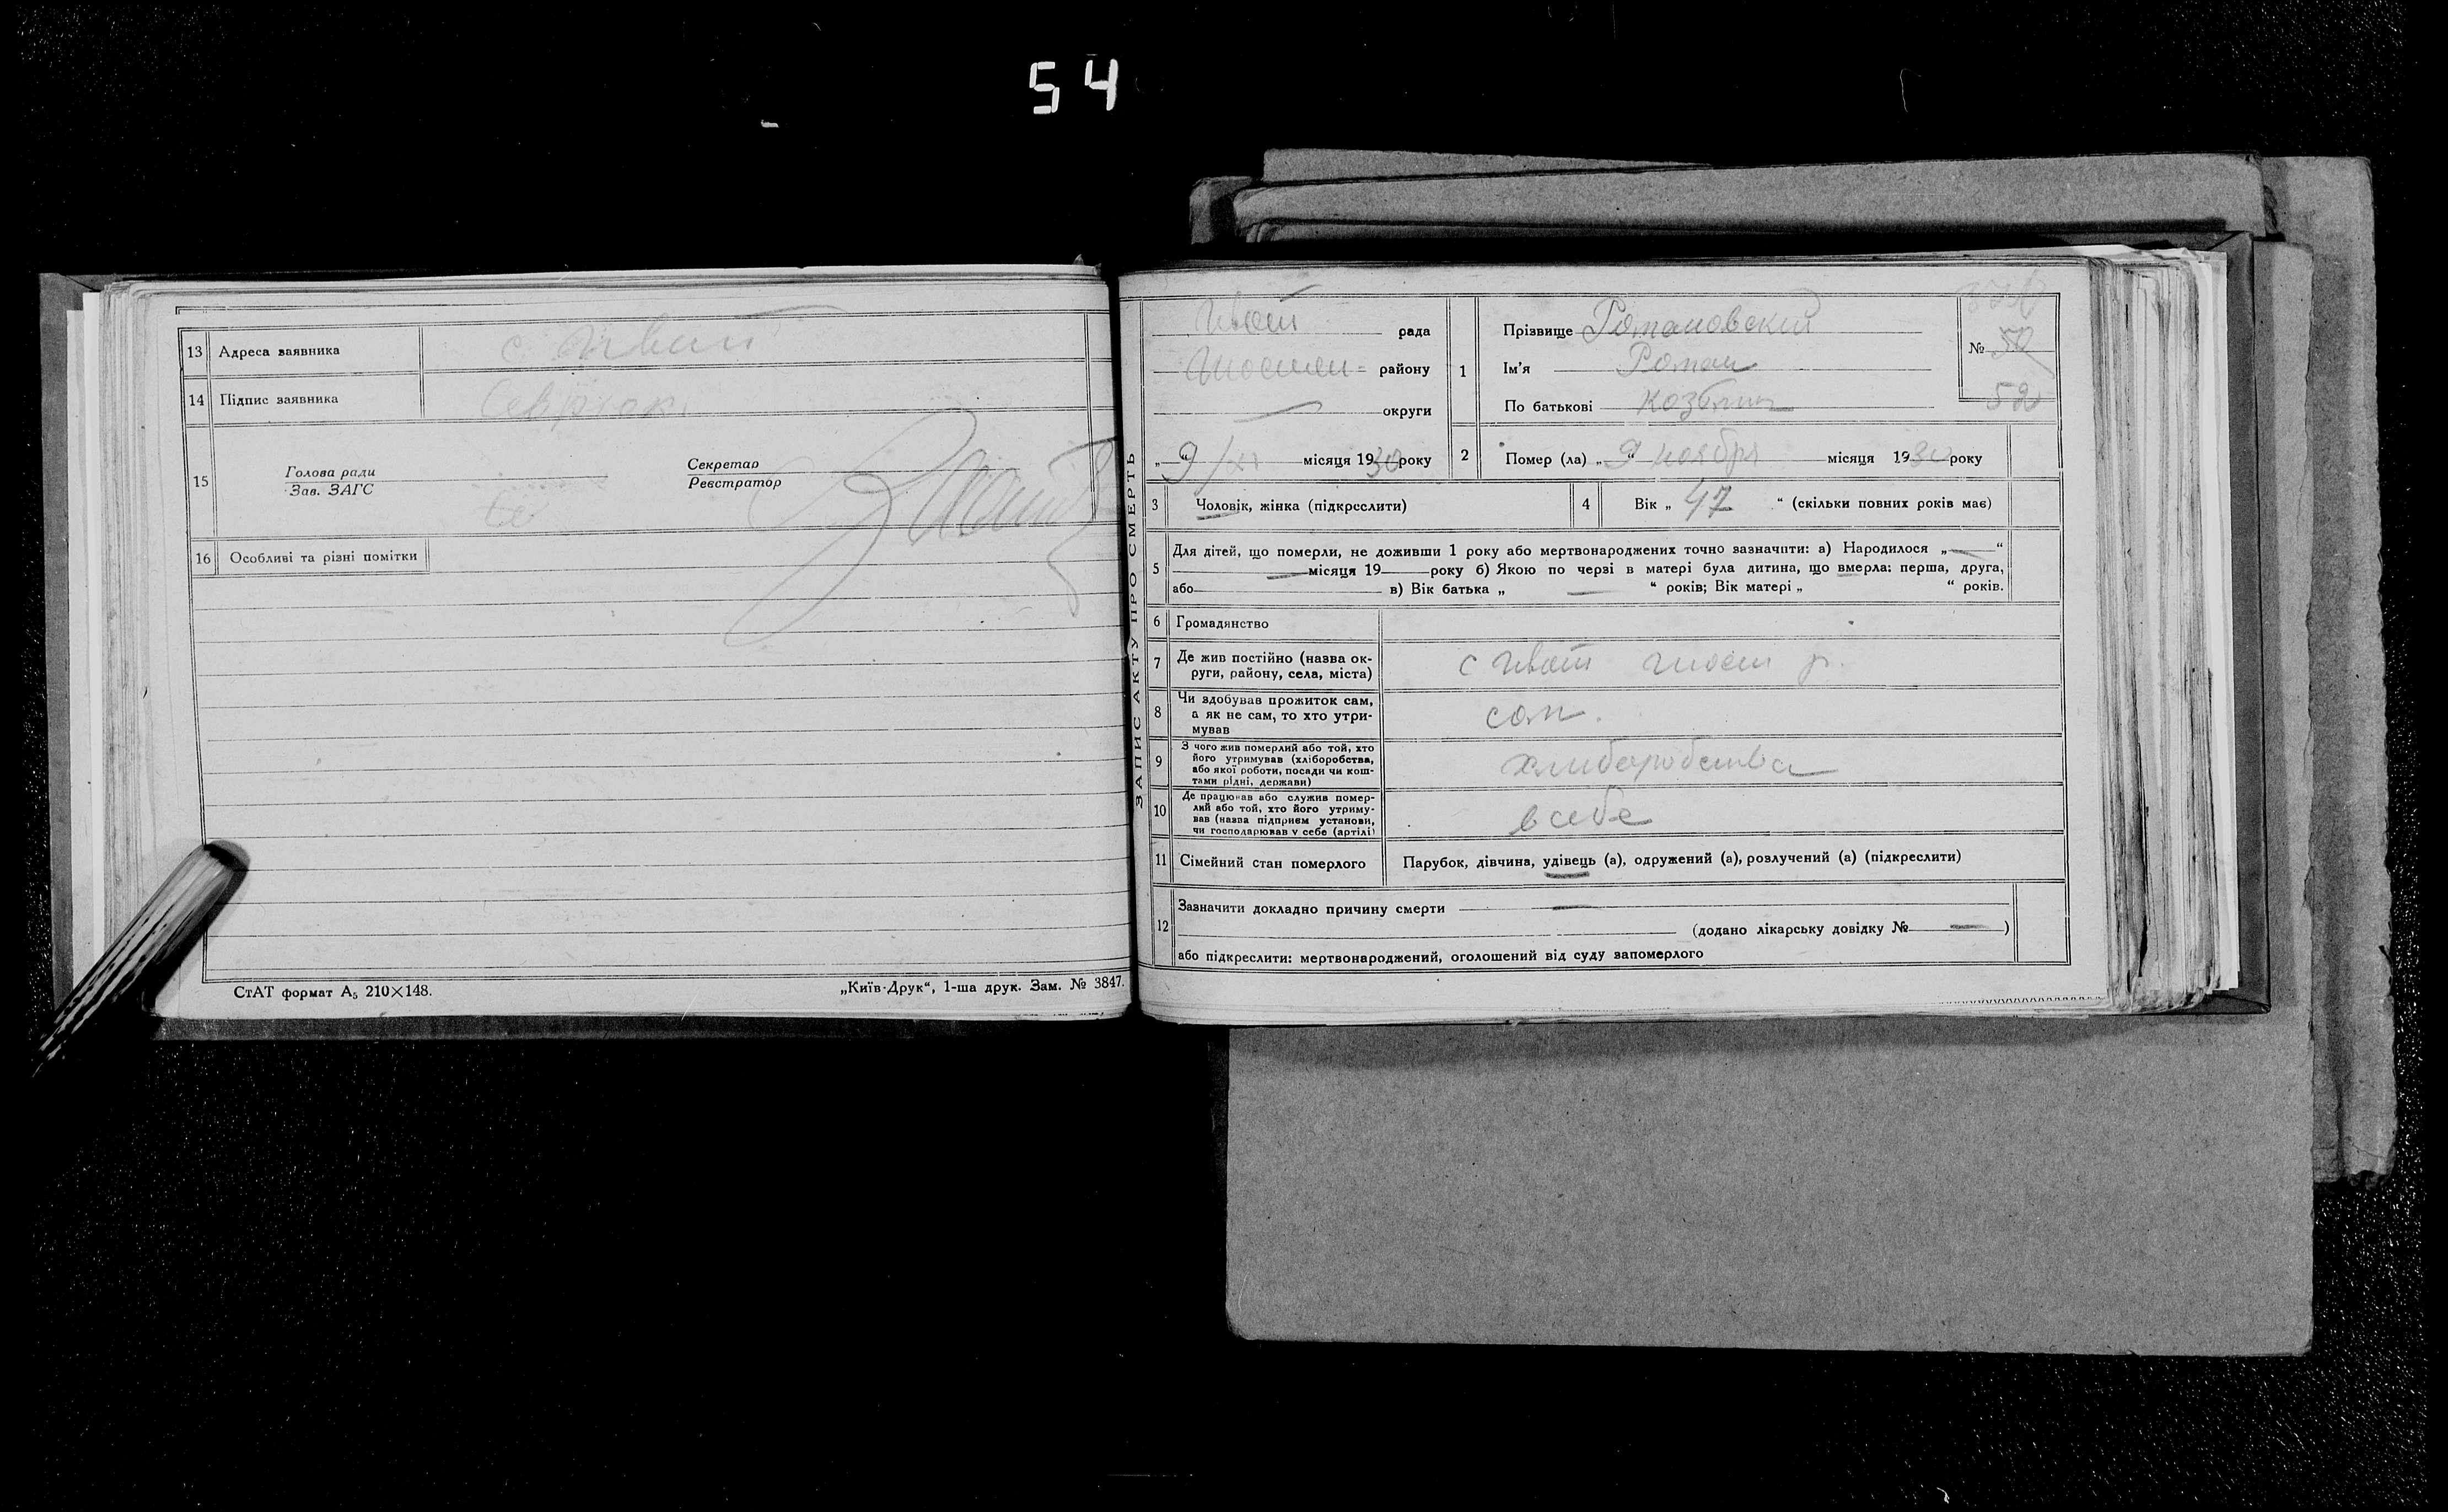 54
13 Адреса заявника с
14 Підпис заявника
15 Голова ради
Зав. ЗАГС
Секретар
Реєстратор
16 Особливі та різні помітки
СтАТ формат А5 210×148.
„Київ-Друк“, 1-ша друк. Зам. № 3847.
ЗАПИС АКТУ ПРО СМЕРТЬ
рада
району
округи
„ 9/XI місяця 1930 року
1 Прізвище Романовский
Ім'я Роман
По батькові
№ 50
52
2 Помер (ла) „ 9 “ ноября місяця 1930 року
3 Чоловік, жінка (підкреслити)
4 Вік „ 47 “ (скільки повних років має)
5 Для дітей, що померли, не доживши 1 року або мертвонароджених точно зазначити: а) Народилося „ — “
— місяця 19 року б) Якою по черзі в матері була дитина, що вмерла: перша, друга,
або в) Вік батька „ — “ років; Вік матері „ “ років.
6 Громадянство
7 Де жив постійно (назва ок-
руги, району, села, міста)
с р.
8 Чи здобував прожиток сам,
а як не сам, то хто утри-
мував
сам.
9 З чого жив померлий або той, хто
його утримував (хліборобства,
або якої роботи, посади чи кош-
тами рідні, держави)
хлиборобства
10 Де працював або служив помер-
лий або той, хто його утриму-
вав (назва підприєм установи,
чи господарював у себе (артілі)
в себе
11 Сімейний стан померлого Парубок, дівчина, удівець (а), одружений (а), розлучений (а) (підкреслити)
12 Зазначити докладно причину смерти —
(додано лікарську довідку № — )
або підкреслити: мертвонароджений, оголошений від суду запомерлого